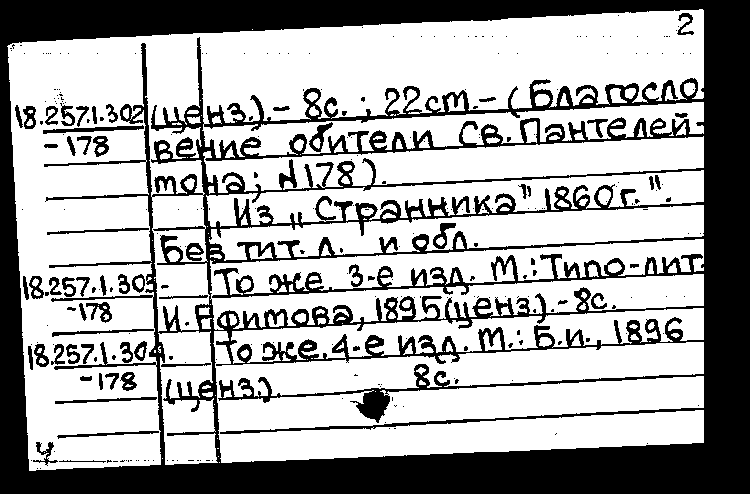 2
18.257.1.302 (ценз.).- 8с. ; 22ст.- (Благосло-
-178 вение обители Св. Пантелей-
мона; №178).
„Из „Странника" 1860г.".
Без тит. л. и обл.
18.257.1.303- То же. 3-е изд. М.: Типо-лит.
-178 И. Ефимова, 1895(ценз.).- 8с.
18.257.1.304. То же. 4-е изд. М.: Б.и., 1896
-178 (ценз.). 8с.
Ч